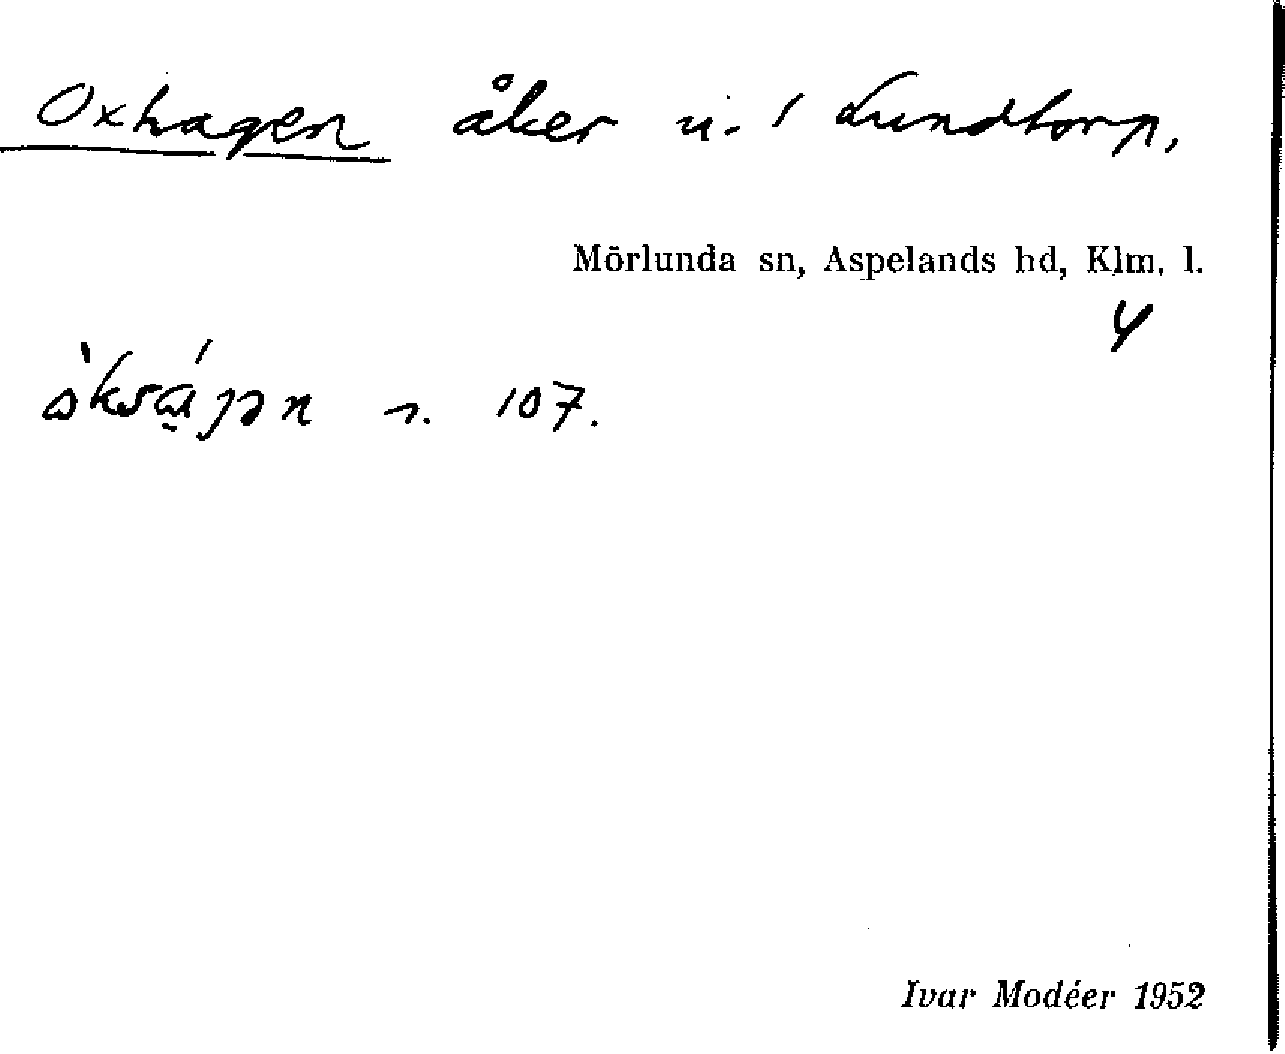 Oxhagen åker u. / Lundtorp.
Mörlunda sn, Aspelands hd, Klm. l.
4
s. 107.
Ivar Modéer 1952